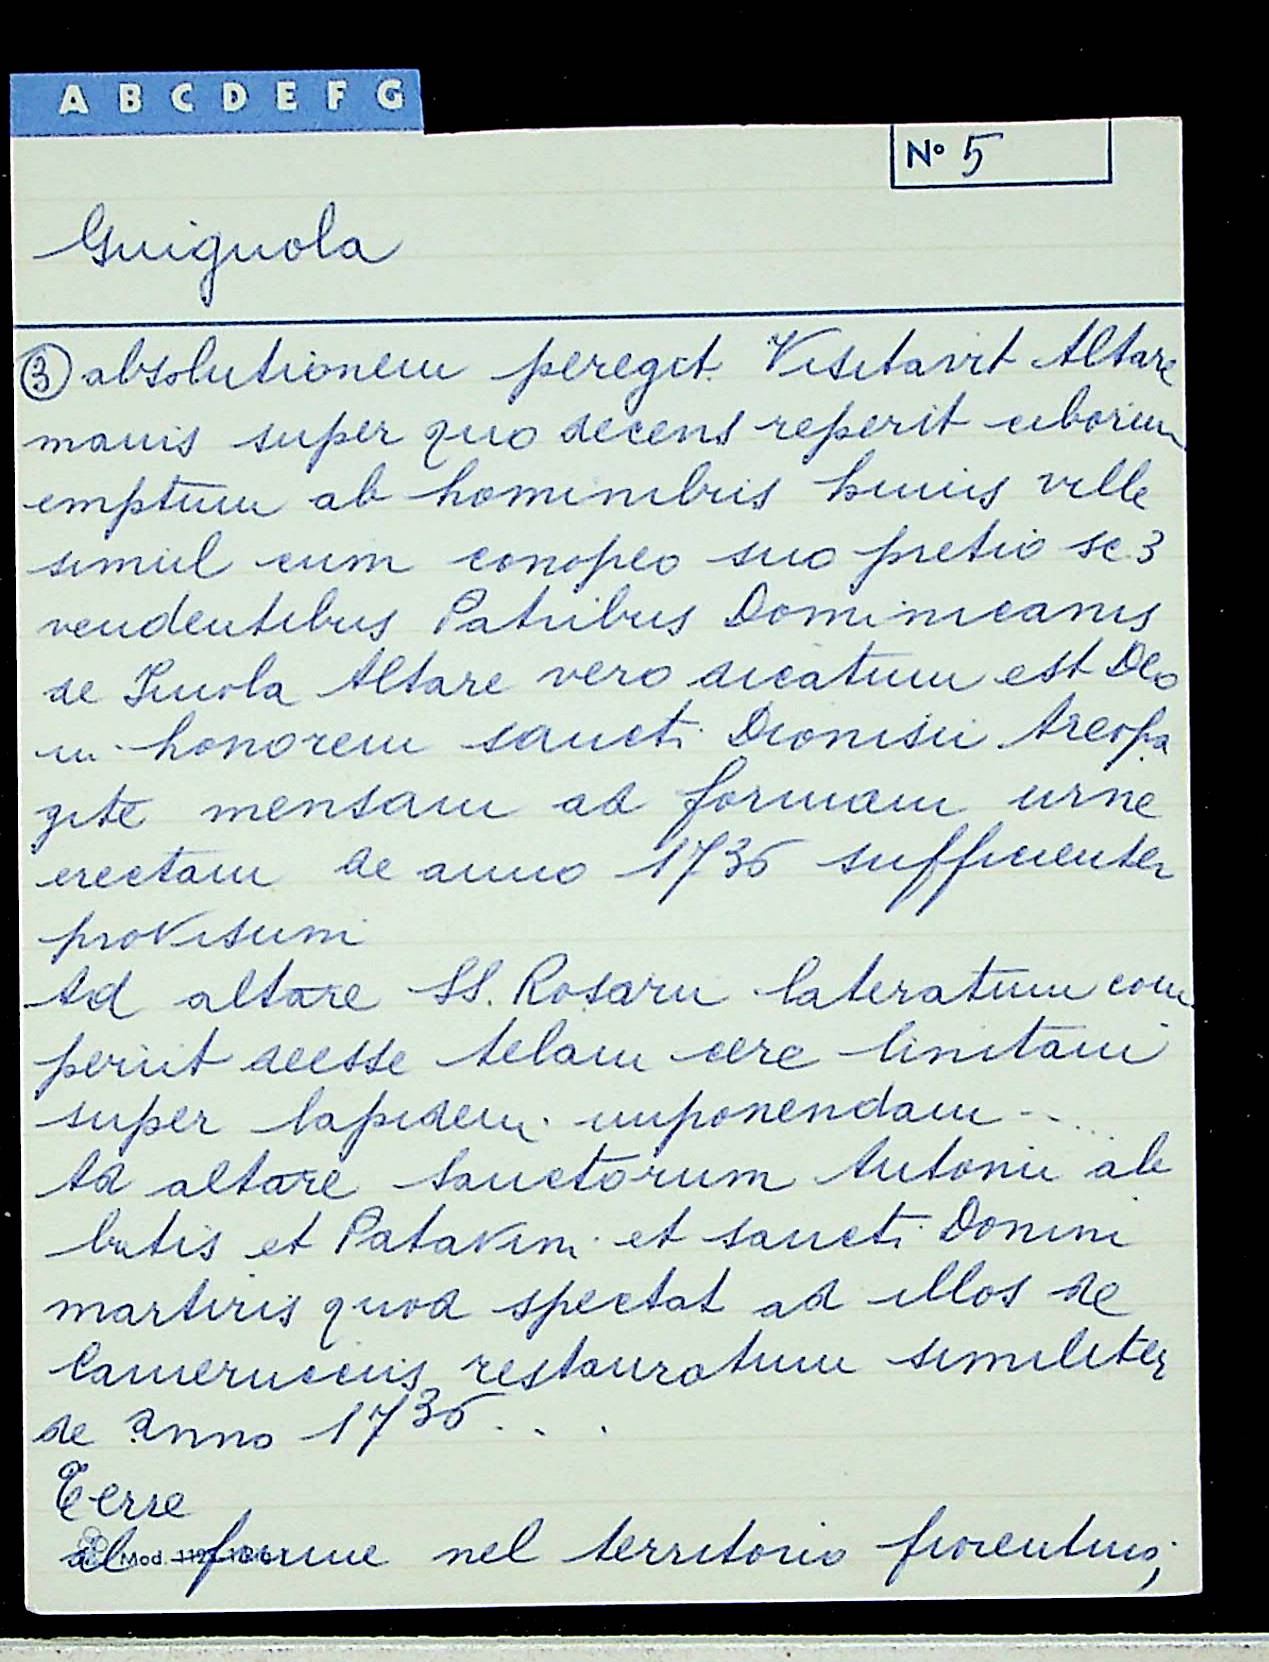 A B C D E F G
N° 5
Guignola
③ absolutionem peregit. Visitavit Altare
maius super quo decens reperit ciborium
emptum ab hominibus huius ville
simul cum conopeo suo pretio sc 3
vendentibus Patribus Dominicanis
de Imola Altare vero dicatum est Deo
in honorem sancti Dionisii Areopa
gite mensam ad formam urne
erectam de anno 1736 sufficienter
provisum
Ad altare SS. Rosarii lateratum com
periit deesse telam cere linitam
super lapidem imponendam - ...
Ad altare Sanctorum Antonii ab
batis et Patavini et sancti Donini
martiris quod spectat ad illos de
Cameruccis restauratum similiter
de anno 1736 . . .
Terre
al fiume nel territorio fiorentino;
Mod.